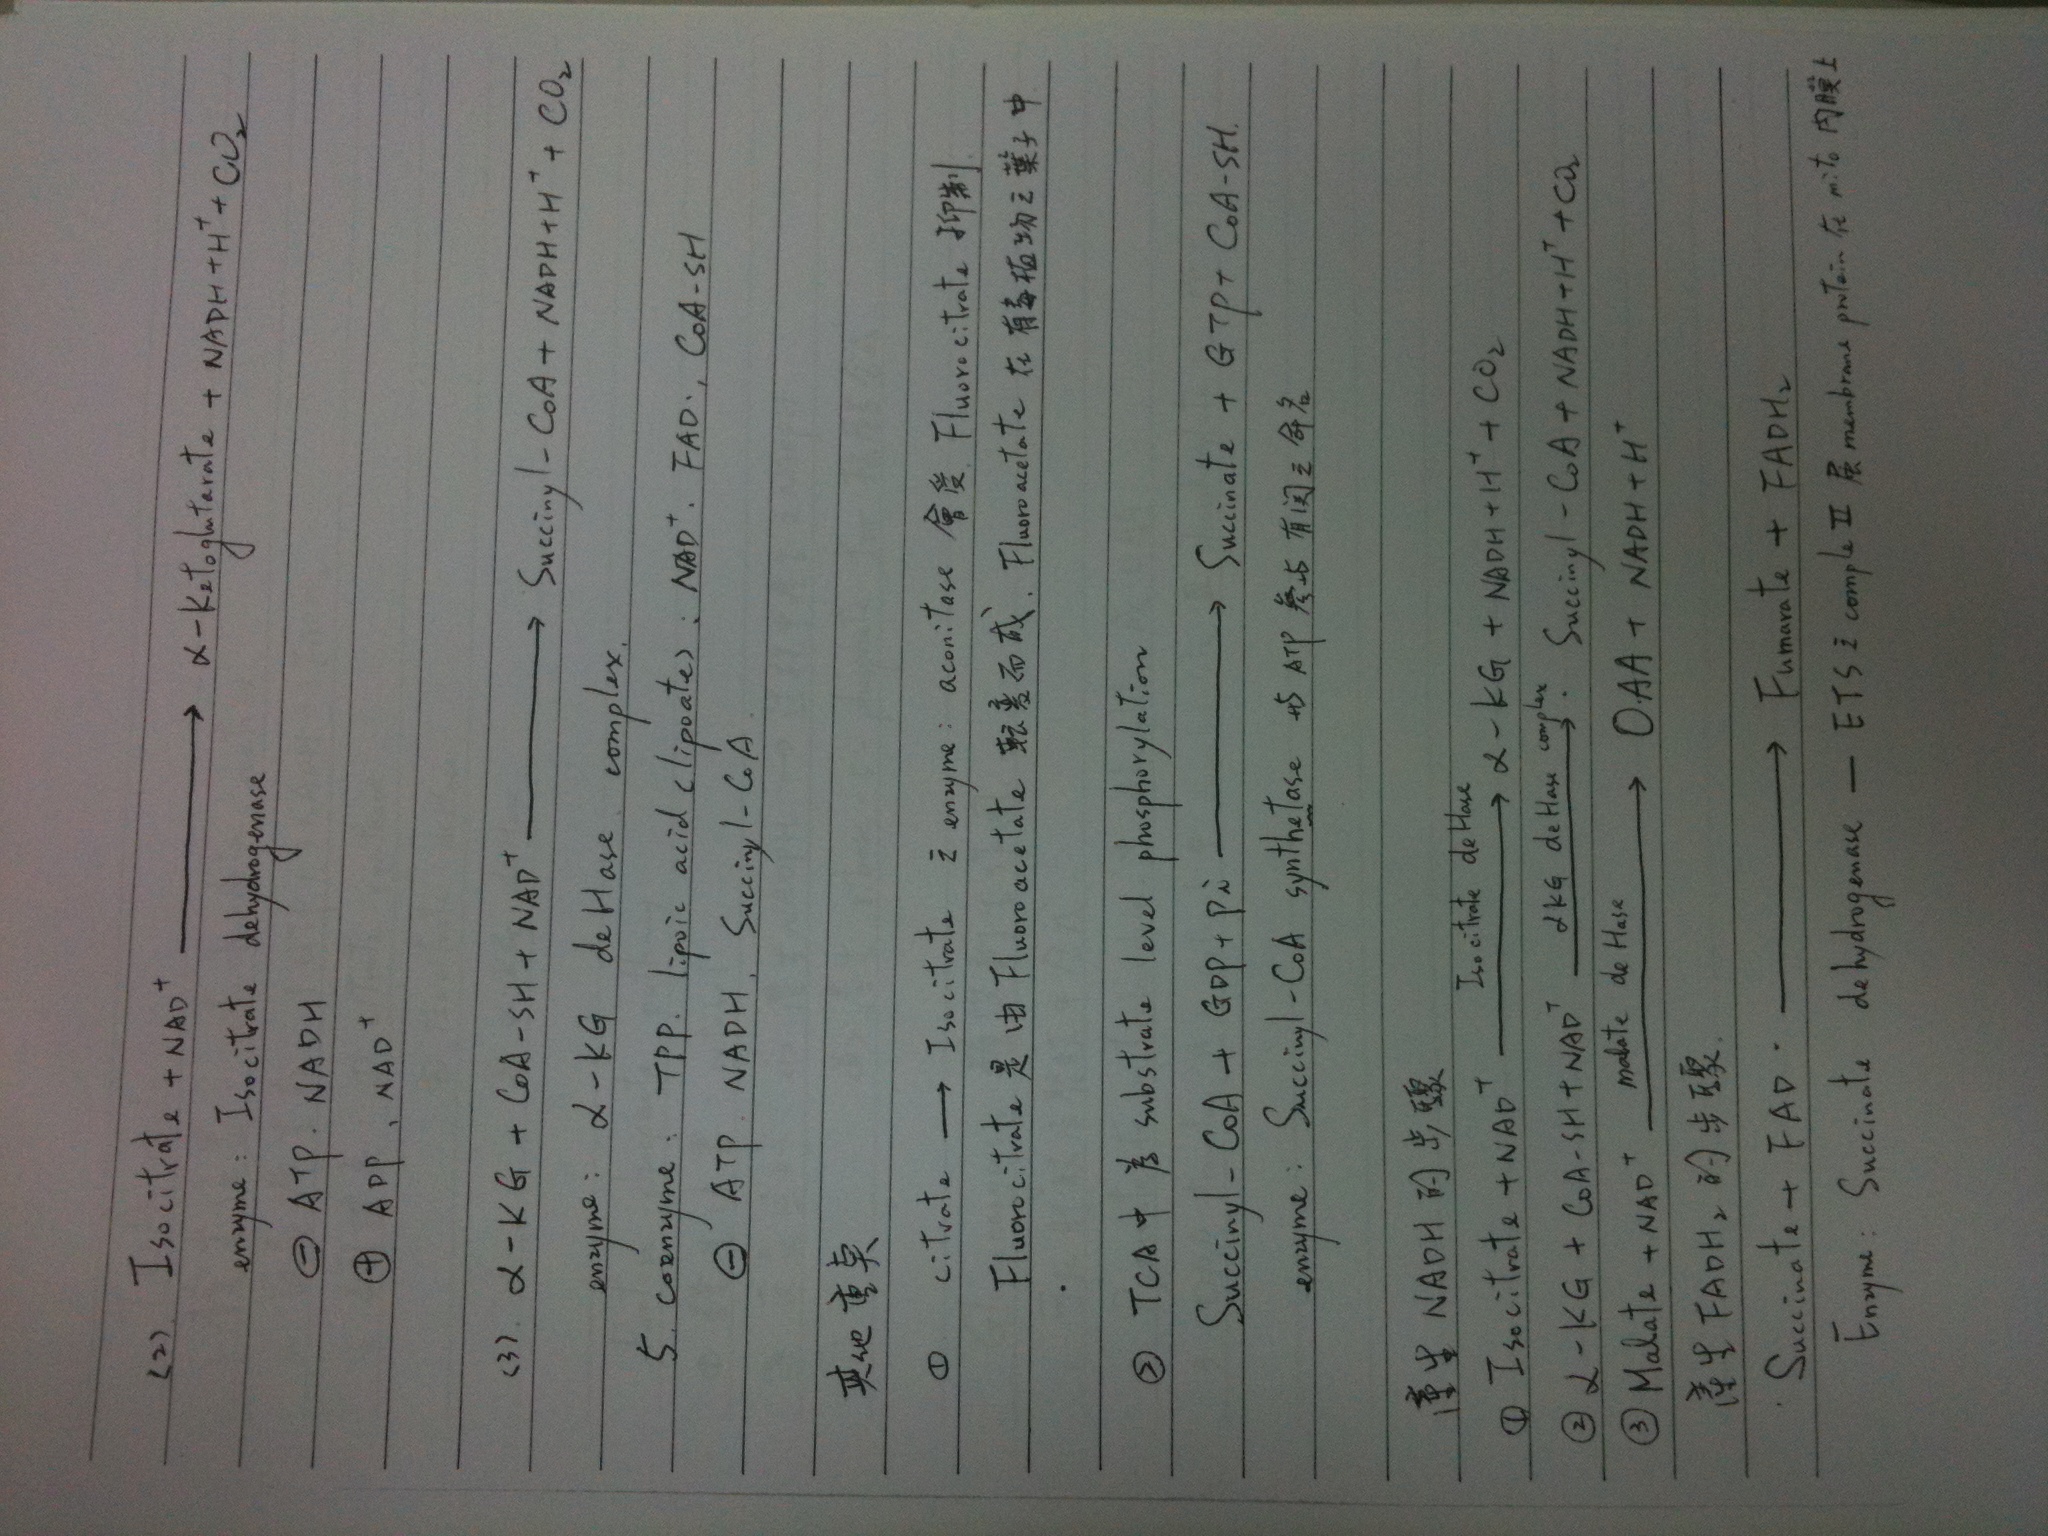 (2) Isocitrate + NAD⁺ ⟶ α-ketogluterate + NADH+H⁺ + CO₂
enzyme : Isocitrate dehydrogenase
⊖ ATP. NADH
⊕ ADP, NAD⁺
(3) α-KG + CoA-SH + NAD⁺ ⟶ Succinyl-CoA + NADH+H⁺ + CO₂
enzyme : α-KG deHase complex.
5. coenzyme : TPP. lipoic acid (lipoate) : NAD⁺. FAD. , CoA-SH
⊖ ATP. NADH, Succinyl-CoA
其他重點
① citrate ⟶ Isocitrate 之 enzyme : aconitase 會受 Fluorocitrate 抑制
Fluorocitrate 是由 Fluoroacetate 轉變而成, Fluoroacetate 在有毒植物之葉子中
② TCA 中 為 substrate level phosphorylation
Succinyl-CoA + GDP + Pi ⟶ Succinate + GTP + CoA-SH.
enzyme : Succinyl-CoA synthetase 與 ATP
產生 NADH 的步驟
① Isocitrate + NAD⁺ Isocitrate deHase ⟶ α-KG + NADH+H⁺ + CO₂
② α-KG + CoA-SH + NAD⁺ αKG deHase complex ⟶ Succinyl-CoA + NADH+H⁺ + CO₂
③ Malate + NAD⁺ malate deHase ⟶ OAA + NADH+H⁺
產生 FADH₂ 的步驟.
Succinate + FAD. ⟶ Fumarate + FADH₂
Enzyme : Succinate dehydrogenase — ETS 之 comple II 屬 membrane protein 在 mito 內膜上